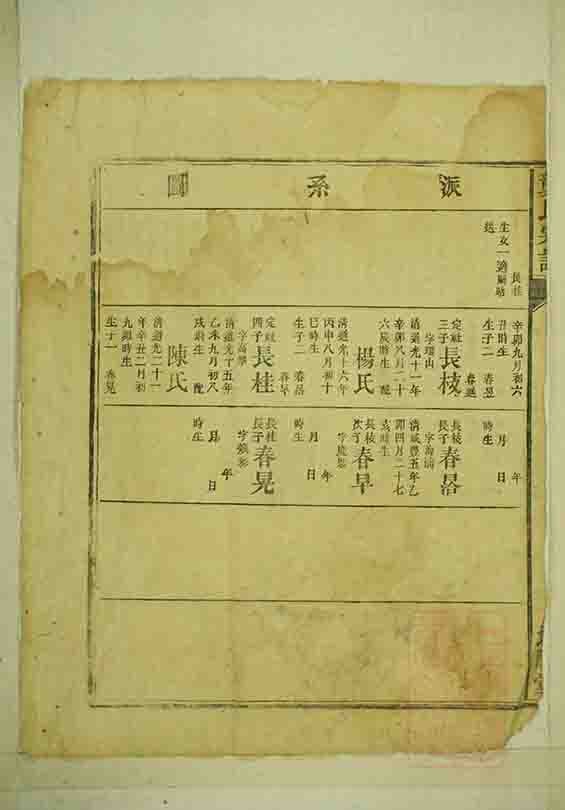 派系圖
生女一適
長桂
辛卯九月初六
丑時生
生子二
定社三子長枝
字瑞山
清道光十一年
辛卯八月二十
六辰時生 配
楊氏
清道光十六年
丙申八月初十
巳時生
生子二
春早
定社四子長桂
字高攀
清道光十五年
乙未九月初八
戌時生 配
陳氏
清道光二十一
年辛丑二月初
九卯時生
生子一 春晃
年
月 日
時生
長枝長子春
清咸豐五年乙
卯四月二十七
時生
長枝次子春早
年
月 日
時生
長桂長子春晃
年
月 日
時生